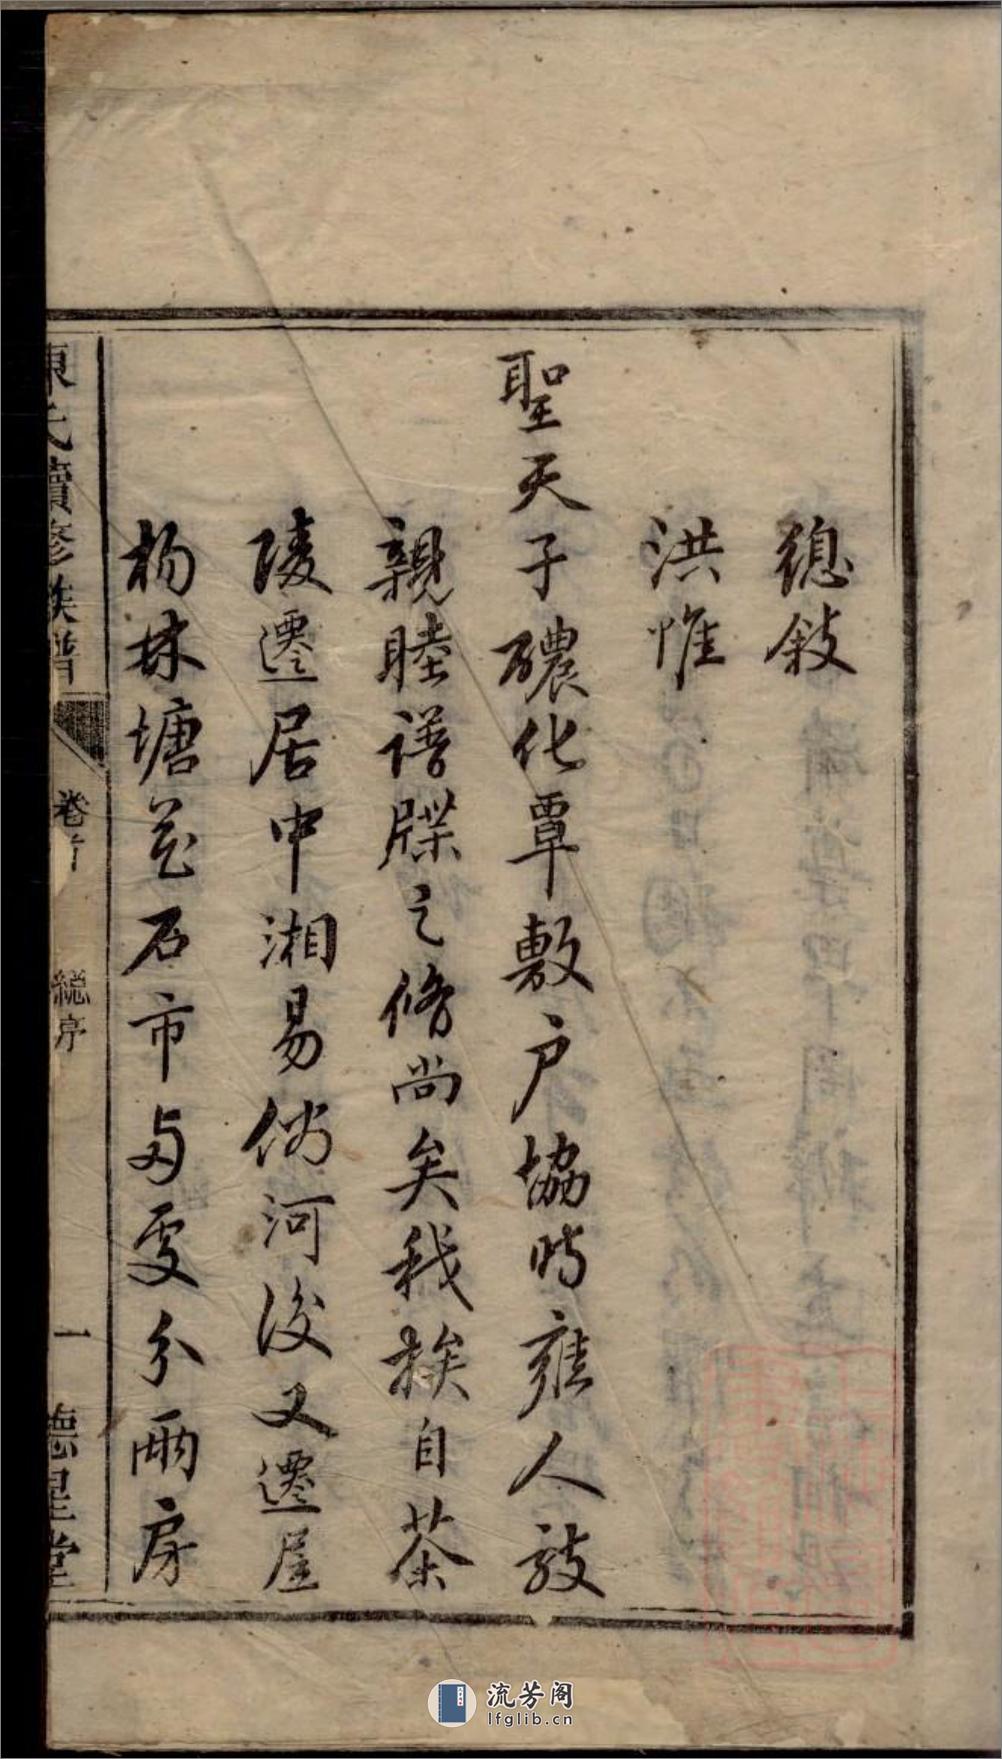 總敍
洪惟
聖天子醲化覃敷户協時雍人敦
親睦譜牒之脩尚矣我族自茶
陵遷居中湘易俗河後又遷居
楊林塘花石市兩處分兩房
陳氏續修族譜 卷首 總序 一 德星堂
流芳阁
lfglib.cn